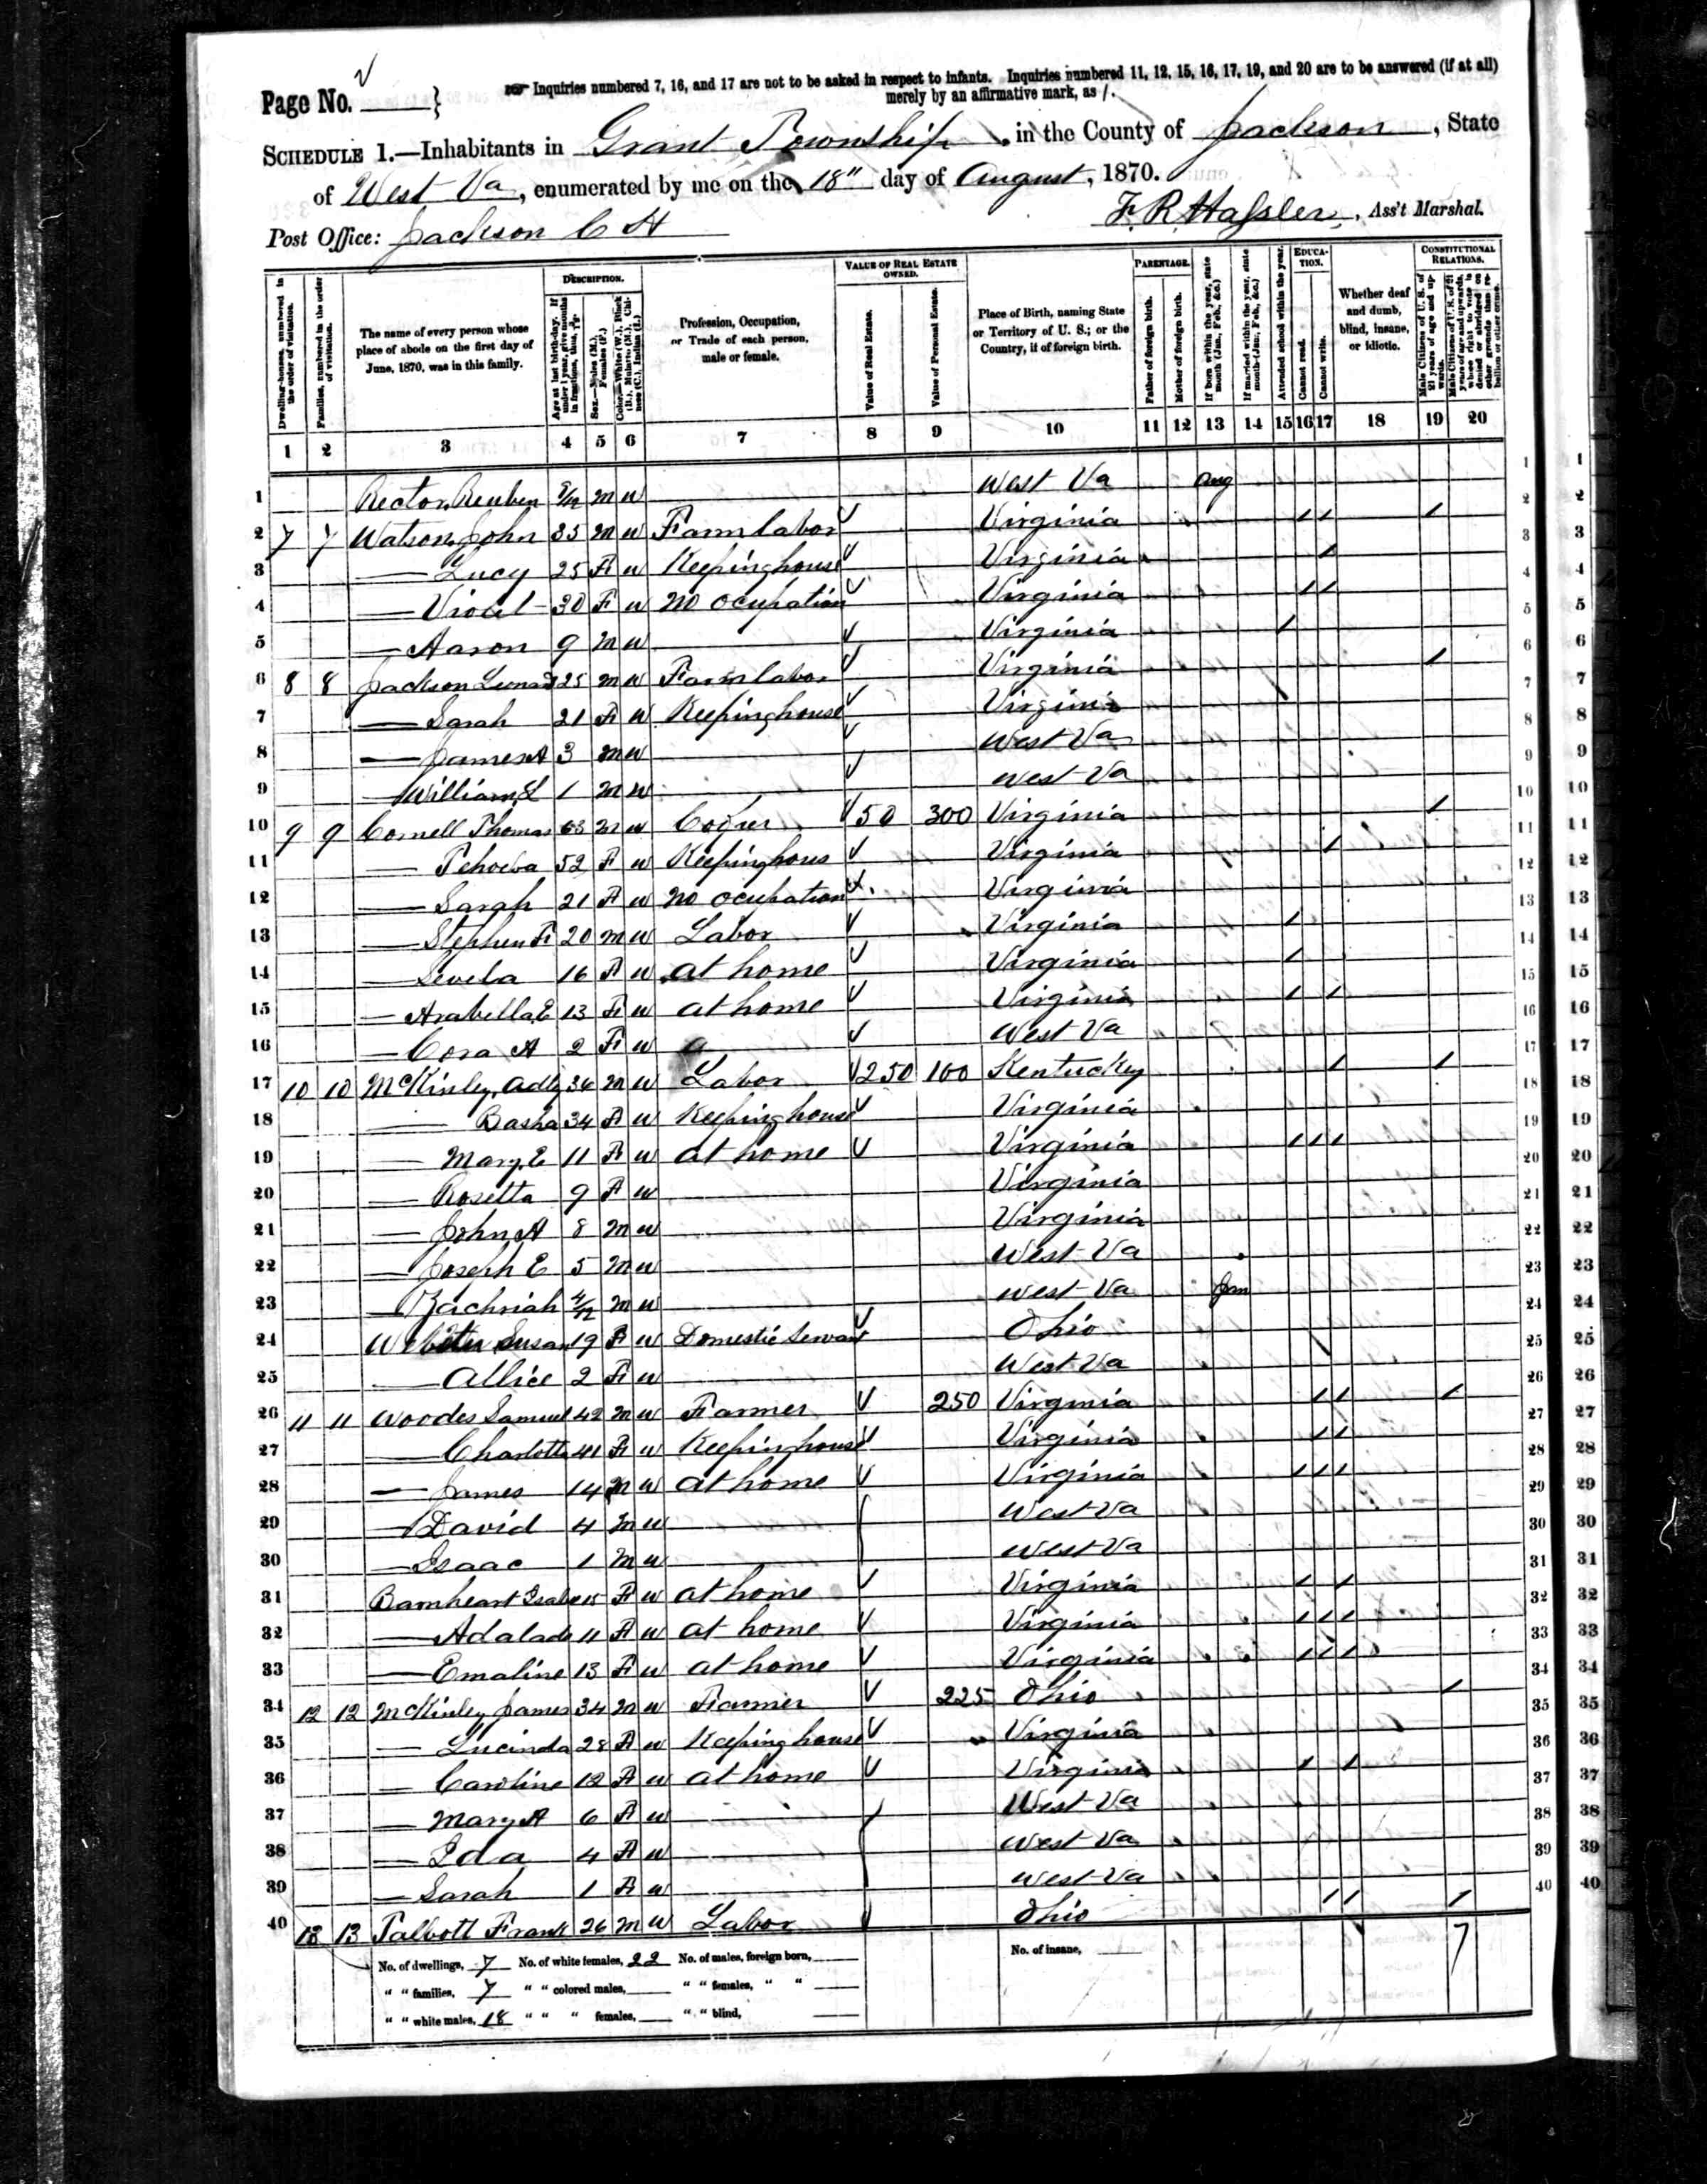 Page No. 2
Inquiries numbered 7, 16, and 17 are not to be asked in respect to infants. Inquiries numbered 11, 12, 15, 16, 17, 19, and 20 are to be answered (if at all)
merely by an affirmative mark, as /.
SCHEDULE 1.—Inhabitants in Grant Township, in the County of Jackson, State
of West Va, enumerated by me on the 18" day of August, 1870.
Post Office: Jackson C H
F. R. Hassler, Ass't Marshal.
Dwelling-houses, numbered in the order of visitation.
Families, numbered in the order of visitation.
The name of every person whose place of abode on the first day of June, 1870, was in this family.
DESCRIPTION.
Age at last birth-day. If under 1 year, give months in fractions, thus,
Sex.—Males (M.), Females (F.)
Color.—White (W.), Black (B.), Mulatto (M.), Chinese (C.), Indian (I.)
Profession, Occupation, or Trade of each person, male or female.
VALUE OF REAL ESTATE OWNED.
Value of Real Estate.
Value of Personal Estate.
Place of Birth, naming State or Territory of U. S.; or the Country, if of foreign birth.
PARENTAGE.
Father of foreign birth.
Mother of foreign birth.
If born within the year, state month (Jan., Feb., &c.)
If married within the year, state month (Jan., Feb., &c.)
Attended school within the year.
EDUCATION.
Cannot read.
Cannot write.
Whether deaf and dumb, blind, insane, or idiotic.
CONSTITUTIONAL RELATIONS.
Male Citizens of U. S. of 21 years of age and upwards.
Male Citizens of U. S. of 21 years of age and upwards, whose right to vote is denied or abridged on other grounds than rebellion or other crime.
1 2 3 4 5 6 7 8 9 10 11 12 13 14 15 16 17 18 19 20
1 Rector, Reuben m w West Va Aug 1
2 7 7 Watson, John 35 m w Farm labor Virginia / / / 2
3 — Lucy 25 F w Keeping house Virginia / 3
4 — 30 F w No ocupation Virginia / / 4
5 — Aaron 9 m w Virginia / 5
6 8 8 Jackson 25 m w Farm labor Virginia / 6
7 — Sarah 21 F w Keeping house Virginia 7
8 — James A 3 m w West Va 8
9 — William L 1 m w West Va 9
10 9 9 Cornell Thomas 63 m w 50 300 Virginia / 10
11 — 52 F w Keeping hous Virginia / 11
12 — Sarah 21 F w No ocupation Virginia 12
13 — Stephen F 20 m w Labor Virginia / 13
14 — 16 F w at home Virginia / 14
15 — Arabella E 13 F w at home Virginia / / 15
16 — Cora A 2 F w West Va 16
17 10 10 McKinley, 36 m w Labor 250 100 Kentucky / / 17
18 — Basha 34 F w Keeping house Virginia 18
19 — Mary E 11 F w at home Virginia / / / 19
20 — Rosetta 9 F w Virginia 20
21 — John A 8 m w Virginia 21
22 — Joseph E 5 m w West Va 22
23 — Zachriah 4/12 m w West Va Jan 23
24 Susan 19 F w Domestic Servant Ohio 24
25 — Allice 2 F w West Va 25
26 11 11 Woodes Samuel 42 m w Farmer 250 Virginia / / / 26
27 — Charlotte 41 F w Keeping house Virginia / / 27
28 — James 14 m w at home Virginia / / / 28
29 — David 4 m w West Va 29
30 — Isaac 1 m w West Va 30
31 Barnheart 15 F w at home Virginia / / 31
32 — Adalade 11 F w at home Virginia / / / 32
33 — Emaline 13 F w at home Virginia / / / 33
34 12 12 McKinley James 34 m w Farmer 225 Ohio / 34
35 — Lucinda 28 F w Keeping house Virginia 35
36 — Caroline 12 F w at home Virginia / / 36
37 — Mary A 6 F w West Va 37
38 — Ida 4 F w West Va 38
39 — Sarah 1 F w West Va 39
40 13 13 Talbott Frank 26 m w Labor Ohio / / / 40
No. of dwellings, 7 No. of white females, 22 No. of males, foreign born, No. of insane, 7
" " families, 7 " " colored males, " " females, " "
" " white males, 18 " " " females, " " blind,